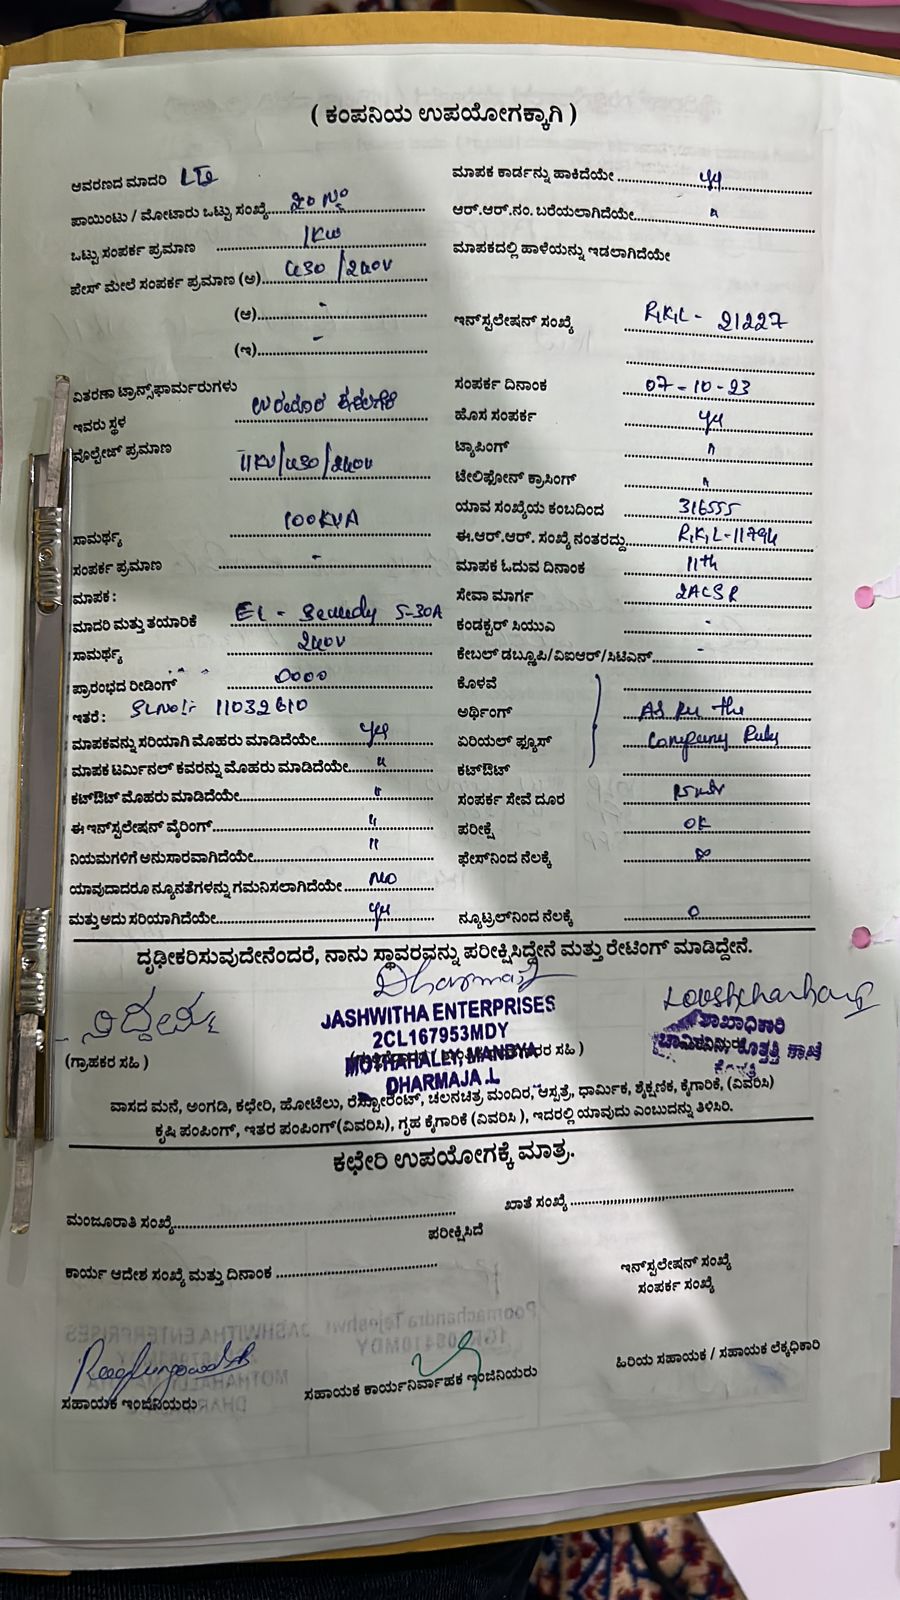 ( ಕಂಪನಿಯ ಉಪಯೋಗಕ್ಕಾಗಿ )
ಆವರಣದ ಮಾದರಿ
ಪಾಯಿಂಟು / ಮೋಟಾರು ಒಟ್ಟು ಸಂಖ್ಯೆ
ಒಟ್ಟು ಸಂಪರ್ಕ ಪ್ರಮಾಣ 1KW
ಪೇಸ್ ಮೇಲೆ ಸಂಪರ್ಕ ಪ್ರಮಾಣ (ಅ) 430/240V
(ಆ) -
(ಇ) -
ವಿತರಣಾ ಟ್ರಾನ್ಸ್‌ಫಾರ್ಮರುಗಳು
ಇವರು ಸ್ಥಳ
ವೊಲ್ಟೇಜ್ ಪ್ರಮಾಣ 11KV/430/240V
ಸಾಮರ್ಥ್ಯ 100KVA
ಸಂಪರ್ಕ ಪ್ರಮಾಣ -
ಮಾಪಕ :
ಮಾದರಿ ಮತ್ತು ತಯಾರಿಕೆ 5-30A
ಸಾಮರ್ಥ್ಯ 240V
ಪ್ರಾರಂಭದ ರೀಡಿಂಗ್ 0000
ಇತರೆ : SLNO:- 11032610
ಮಾಪಕವನ್ನು ಸರಿಯಾಗಿ ಮೊಹರು ಮಾಡಿದೆಯೇ
ಮಾಪಕ ಟರ್ಮಿನಲ್ ಕವರನ್ನು ಮೊಹರು ಮಾಡಿದೆಯೇ "
ಕಟ್‌ಔಟ್ ಮೊಹರು ಮಾಡಿದೆಯೇ "
ಈ ಇನ್‌ಸ್ಟಲೇಷನ್ ವೈರಿಂಗ್ "
ನಿಯಮಗಳಿಗೆ ಅನುಸಾರವಾಗಿದೆಯೇ "
ಯಾವುದಾದರೂ ನ್ಯೂನತೆಗಳನ್ನು ಗಮನಿಸಲಾಗಿದೆಯೇ No
ಮತ್ತು ಅದು ಸರಿಯಾಗಿದೆಯೇ
ಮಾಪಕ ಕಾರ್ಡನ್ನು ಹಾಕಿದೆಯೇ
ಆರ್.ಆರ್.ನಂ. ಬರೆಯಲಾಗಿದೆಯೇ "
ಮಾಪಕದಲ್ಲಿ ಹಾಳೆಯನ್ನು ಇಡಲಾಗಿದೆಯೇ
ಇನ್‌ಸ್ಟಲೇಷನ್ ಸಂಖ್ಯೆ RKL - 21227
ಸಂಪರ್ಕ ದಿನಾಂಕ 07-10-23
ಹೊಸ ಸಂಪರ್ಕ
ಟ್ಯಾಪಿಂಗ್ "
ಟೆಲಿಫೋನ್ ಕ್ರಾಸಿಂಗ್ "
ಯಾವ ಸಂಖ್ಯೆಯ ಕಂಬದಿಂದ 316555
ಈ.ಆರ್.ಆರ್. ಸಂಖ್ಯೆ ನಂತರದ್ದು RKL-11794
ಮಾಪಕ ಓದುವ ದಿನಾಂಕ 11th
ಸೇವಾ ಮಾರ್ಗ 2ACSR
ಕಂಡಕ್ಟರ್ ಸಿಯುಎ -
ಕೇಬಲ್ ಡಬ್ಲ್ಯೂಪಿ/ವಿಐಆರ್/ಸಿಟಿಎನ್ -
ಕೊಳವೆ
ಅರ್ಥಿಂಗ್ As per the
ಏರಿಯಲ್ ಫ್ಯೂಸ್ Company Rules
ಕಟ್‌ಔಟ್
ಸಂಪರ್ಕ ಸೇವೆ ದೂರ
ಪರೀಕ್ಷೆ OK
ಫೇಸ್‌ನಿಂದ ನೆಲಕ್ಕೆ ∞
ನ್ಯೂಟ್ರಲ್‌ನಿಂದ ನೆಲಕ್ಕೆ 0
ದೃಢೀಕರಿಸುವುದೇನೆಂದರೆ, ನಾನು ಸ್ಥಾವರವನ್ನು ಪರೀಕ್ಷಿಸಿದ್ದೇನೆ ಮತ್ತು ರೇಟಿಂಗ್ ಮಾಡಿದ್ದೇನೆ.
JASHWITHA ENTERPRISES
2CL167953MDY
MOTHAHALLY, MANDYA
DHARMAJA .L
ಶಾಖಾಧಿಕಾರಿ
(ಗ್ರಾಹಕರ ಸಹಿ )
ವಾಸದ ಮನೆ, ಅಂಗಡಿ, ಕಛೇರಿ, ಹೋಟೆಲು, ರೆಸ್ಟೋರೆಂಟ್, ಚಲನಚಿತ್ರ ಮಂದಿರ, ಆಸ್ಪತ್ರೆ, ಧಾರ್ಮಿಕ, ಶೈಕ್ಷಣಿಕ, ಕೈಗಾರಿಕೆ, (ವಿವರಿಸಿ)
ಕೃಷಿ ಪಂಪಿಂಗ್, ಇತರ ಪಂಪಿಂಗ್(ವಿವರಿಸಿ), ಗೃಹ ಕೈಗಾರಿಕೆ (ವಿವರಿಸಿ ), ಇದರಲ್ಲಿ ಯಾವುದು ಎಂಬುದನ್ನು ತಿಳಿಸಿರಿ.
ಕಛೇರಿ ಉಪಯೋಗಕ್ಕೆ ಮಾತ್ರ.
ಮಂಜೂರಾತಿ ಸಂಖ್ಯೆ
ಖಾತೆ ಸಂಖ್ಯೆ
ಪರೀಕ್ಷಿಸಿದೆ
ಕಾರ್ಯ ಆದೇಶ ಸಂಖ್ಯೆ ಮತ್ತು ದಿನಾಂಕ
ಇನ್‌ಸ್ಟಲೇಷನ್ ಸಂಖ್ಯೆ
ಸಂಪರ್ಕ ಸಂಖ್ಯೆ
ಸಹಾಯಕ ಇಂಜಿನಿಯರು
ಸಹಾಯಕ ಕಾರ್ಯನಿರ್ವಾಹಕ ಇಂಜಿನಿಯರು
ಹಿರಿಯ ಸಹಾಯಕ / ಸಹಾಯಕ ಲೆಕ್ಕಧಿಕಾರಿ